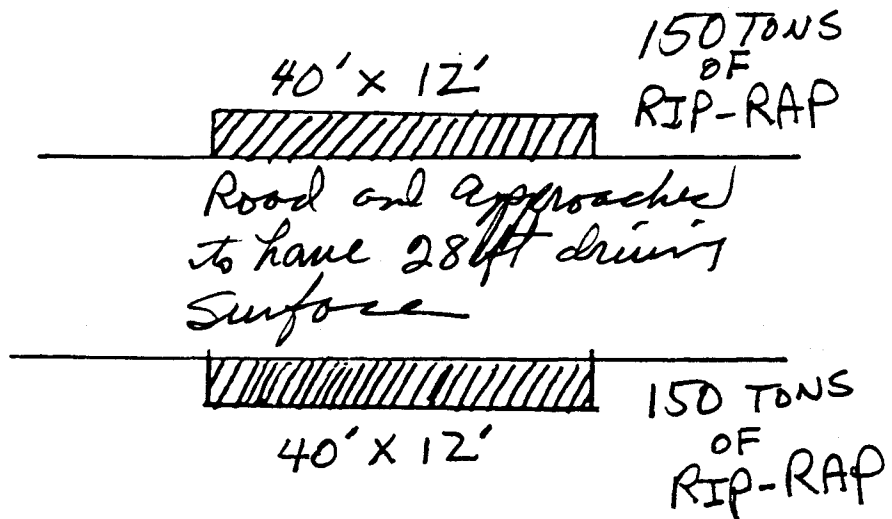 150 TONS
OF
RIP-RAP
40' X 12'
Road and Approaches
to have 28 ft driving
Surface
40' X 12'
150 TONS
OF
RIP-RAP